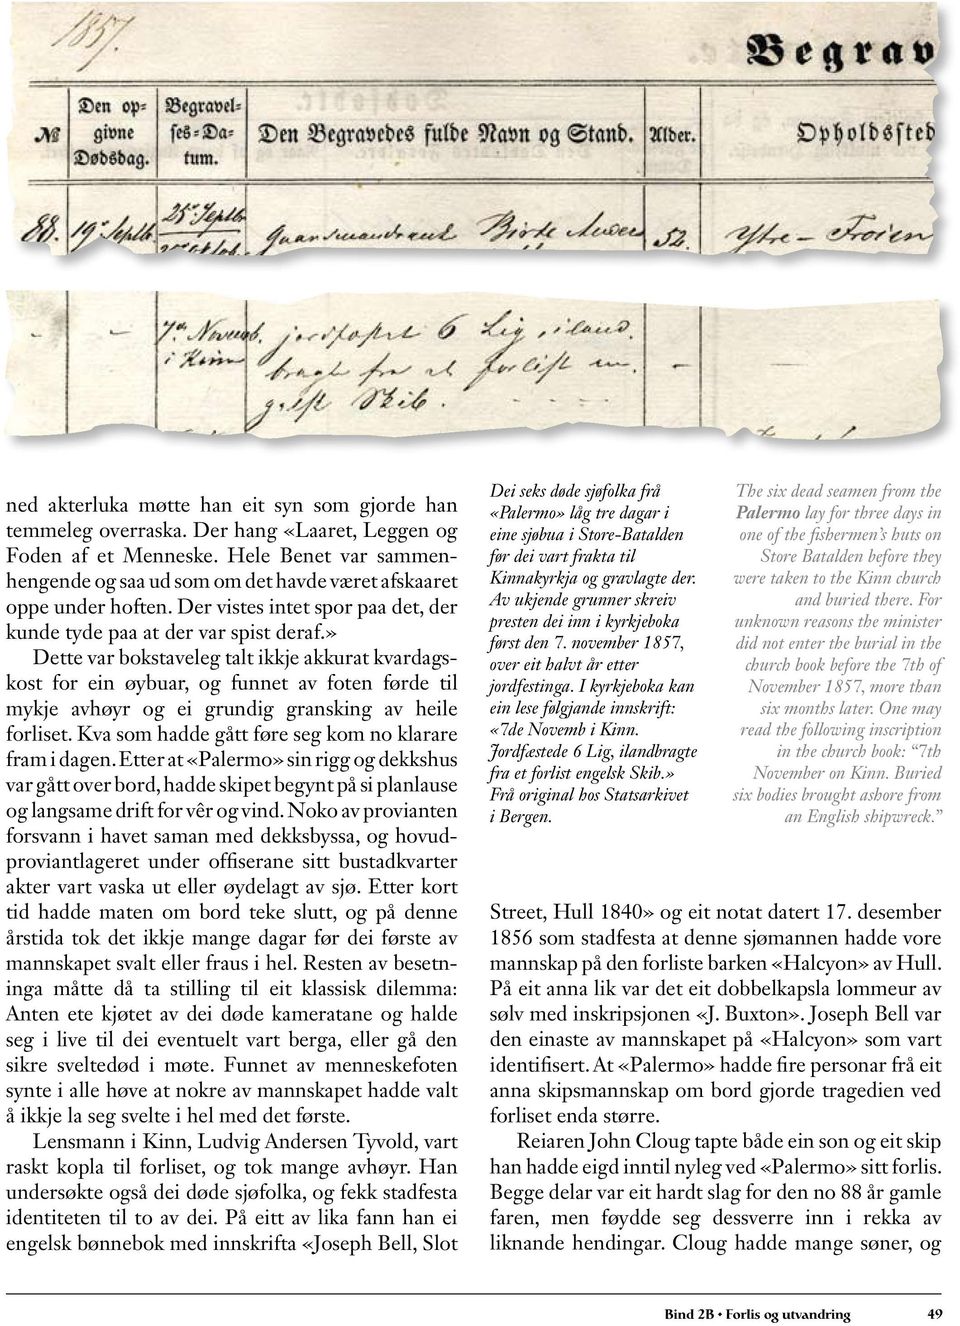 1857.
Begrav
№
Den op=
givne
Dødsdag.
Begravel=
ses=Da=
tum.
Den Begravedes fulde Navn og Stand.
Alder.
Opholdssted
88.
19de Septbr.
25de Septbr
2den Oktob.
Gaardmandsenke Birte Anders
52.
Ytre-Froien
- -
7de Novemb.
i Kinn
jordfæstet 6 Lig, iland-
bragte fra et forlist en-
gelsk Skib. - - - - -
-
-
ned akterluka møtte han eit syn som gjorde han
temmeleg overraska. Der hang «Laaret, Leggen og
Foden af et Menneske. Hele Benet var sammen-
hengende og saa ud som om det havde været afskaaret
oppe under hoften. Der vistes intet spor paa det, der
kunde tyde paa at der var spist deraf.»
Dette var bokstaveleg talt ikkje akkurat kvardags-
kost for ein øybuar, og funnet av foten førde til
mykje avhøyr og ei grundig gransking av heile
forliset. Kva som hadde gått føre seg kom no klarare
fram i dagen. Etter at «Palermo» sin rigg og dekkshus
var gått over bord, hadde skipet begynt på si planlause
og langsame drift for vêr og vind. Noko av provianten
forsvann i havet saman med dekksbyssa, og hovud-
proviantlageret under offiserane sitt bustadkvarter
akter vart vaska ut eller øydelagt av sjø. Etter kort
tid hadde maten om bord teke slutt, og på denne
årstida tok det ikkje mange dagar før dei første av
mannskapet svalt eller fraus i hel. Resten av besetn-
inga måtte då ta stilling til eit klassisk dilemma:
Anten ete kjøtet av dei døde kameratane og halde
seg i live til dei eventuelt vart berga, eller gå den
sikre sveltedød i møte. Funnet av menneskefoten
synte i alle høve at nokre av mannskapet hadde valt
å ikkje la seg svelte i hel med det første.
Lensmann i Kinn, Ludvig Andersen Tyvold, vart
raskt kopla til forliset, og tok mange avhøyr. Han
undersøkte også dei døde sjøfolka, og fekk stadfesta
identiteten til to av dei. På eitt av lika fann han ei
engelsk bønnebok med innskrifta «Joseph Bell, Slot
Dei seks døde sjøfolka frå
«Palermo» låg tre dagar i
eine sjøbua i Store-Batalden
før dei vart frakta til
Kinnakyrkja og gravlagte der.
Av ukjende grunner skreiv
presten dei inn i kyrkjeboka
først den 7. november 1857,
over eit halvt år etter
jordfestinga. I kyrkjeboka kan
ein lese følgjande innskrift:
«7de Novemb i Kinn.
Jordfæstede 6 Lig, ilandbragte
fra et forlist engelsk Skib.»
Frå original hos Statsarkivet
i Bergen.
The six dead seamen from the
Palermo lay for three days in
one of the fishermen's huts on
Store Batalden before they
were taken to the Kinn church
and buried there. For
unknown reasons the minister
did not enter the burial in the
church book before the 7th of
November 1857, more than
six months later. One may
read the following inscription
in the church book: “7th
November on Kinn. Buried
six bodies brought ashore from
an English shipwreck.”
Street, Hull 1840» og eit notat datert 17. desember
1856 som stadfesta at denne sjømannen hadde vore
mannskap på den forliste barken «Halcyon» av Hull.
På eit anna lik var det eit dobbelkapsla lommeur av
sølv med inskripsjonen «J. Buxton». Joseph Bell var
den einaste av mannskapet på «Halcyon» som vart
identifisert. At «Palermo» hadde fire personar frå eit
anna skipsmannskap om bord gjorde tragedien ved
forliset enda større.
Reiaren John Cloug tapte både ein son og eit skip
han hadde eigd inntil nyleg ved «Palermo» sitt forlis.
Begge delar var eit hardt slag for den no 88 år gamle
faren, men føydde seg dessverre inn i rekka av
liknande hendingar. Cloug hadde mange søner, og
Bind 2B • Forlis og utvandring 49